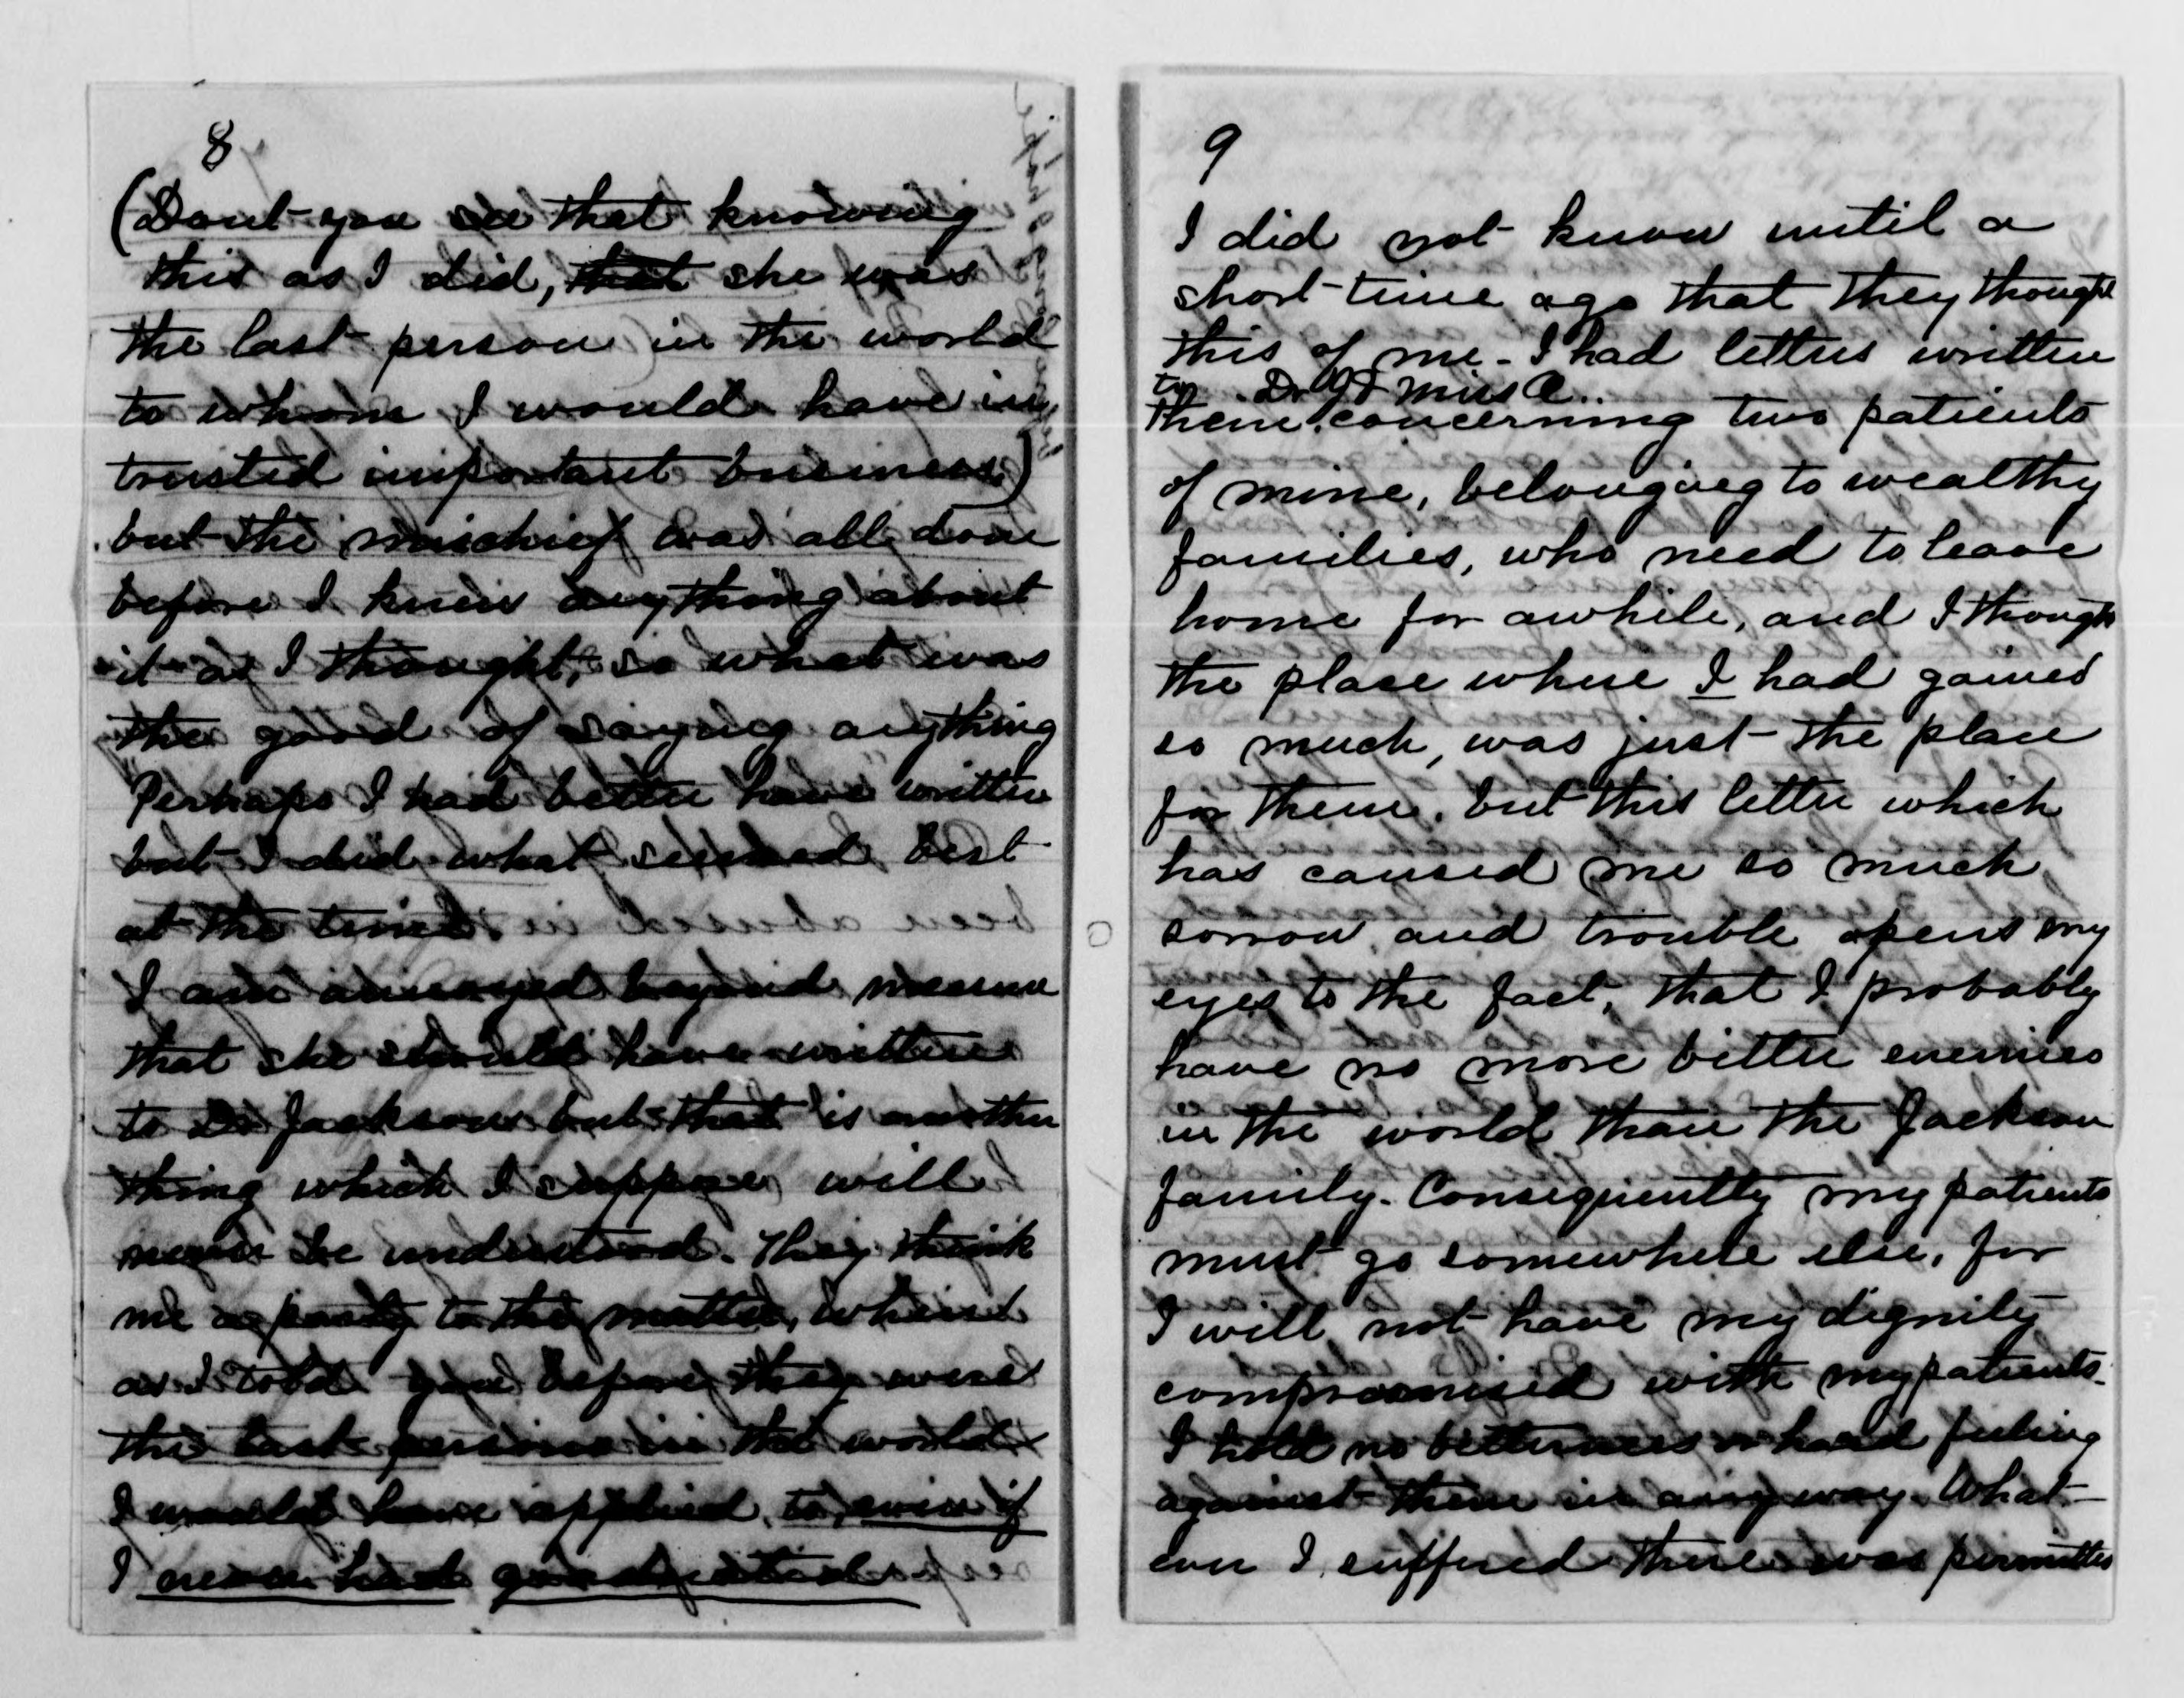 8
(Dont you see that knowing
this as I did, that she was
the last person in the world
to whom I would have in,
trusted important business)
but the mischief was all done
before I knew anything about
it as I thought, so what was
the good of saying anything
Perhaps I had better have written
but I did what seemed best
at the time.
I am annoyed beyond measure
that she should have written
to Dr Jackson but that is another
thing which I suppose will
never be understood. They think
me a party to the matter, when
as I told you before they were
the last persons in the world
I would have applied to, even if
I never had
9
I did not know until a
short time ago that they thought
this of me - I had letters written
to Dr J & Miss A..
them concerning two patients
of mine, belonging to wealthy
families, who need to leave
home for awhile, and I though
the place where I had gained
so much, was just the place
for them. but this letter which
has caused me so much
sorrow and trouble opens my
eyes to the fact, that I probably
have no more bitter enemies
in the world than the Jackson
family. Consequently my patients
must go somewhere else, for
I will not have my dignity
compromised with my patients.
I hold no bitterness or hard feeling
against them in any way. What-
ever I suffered there was permitted